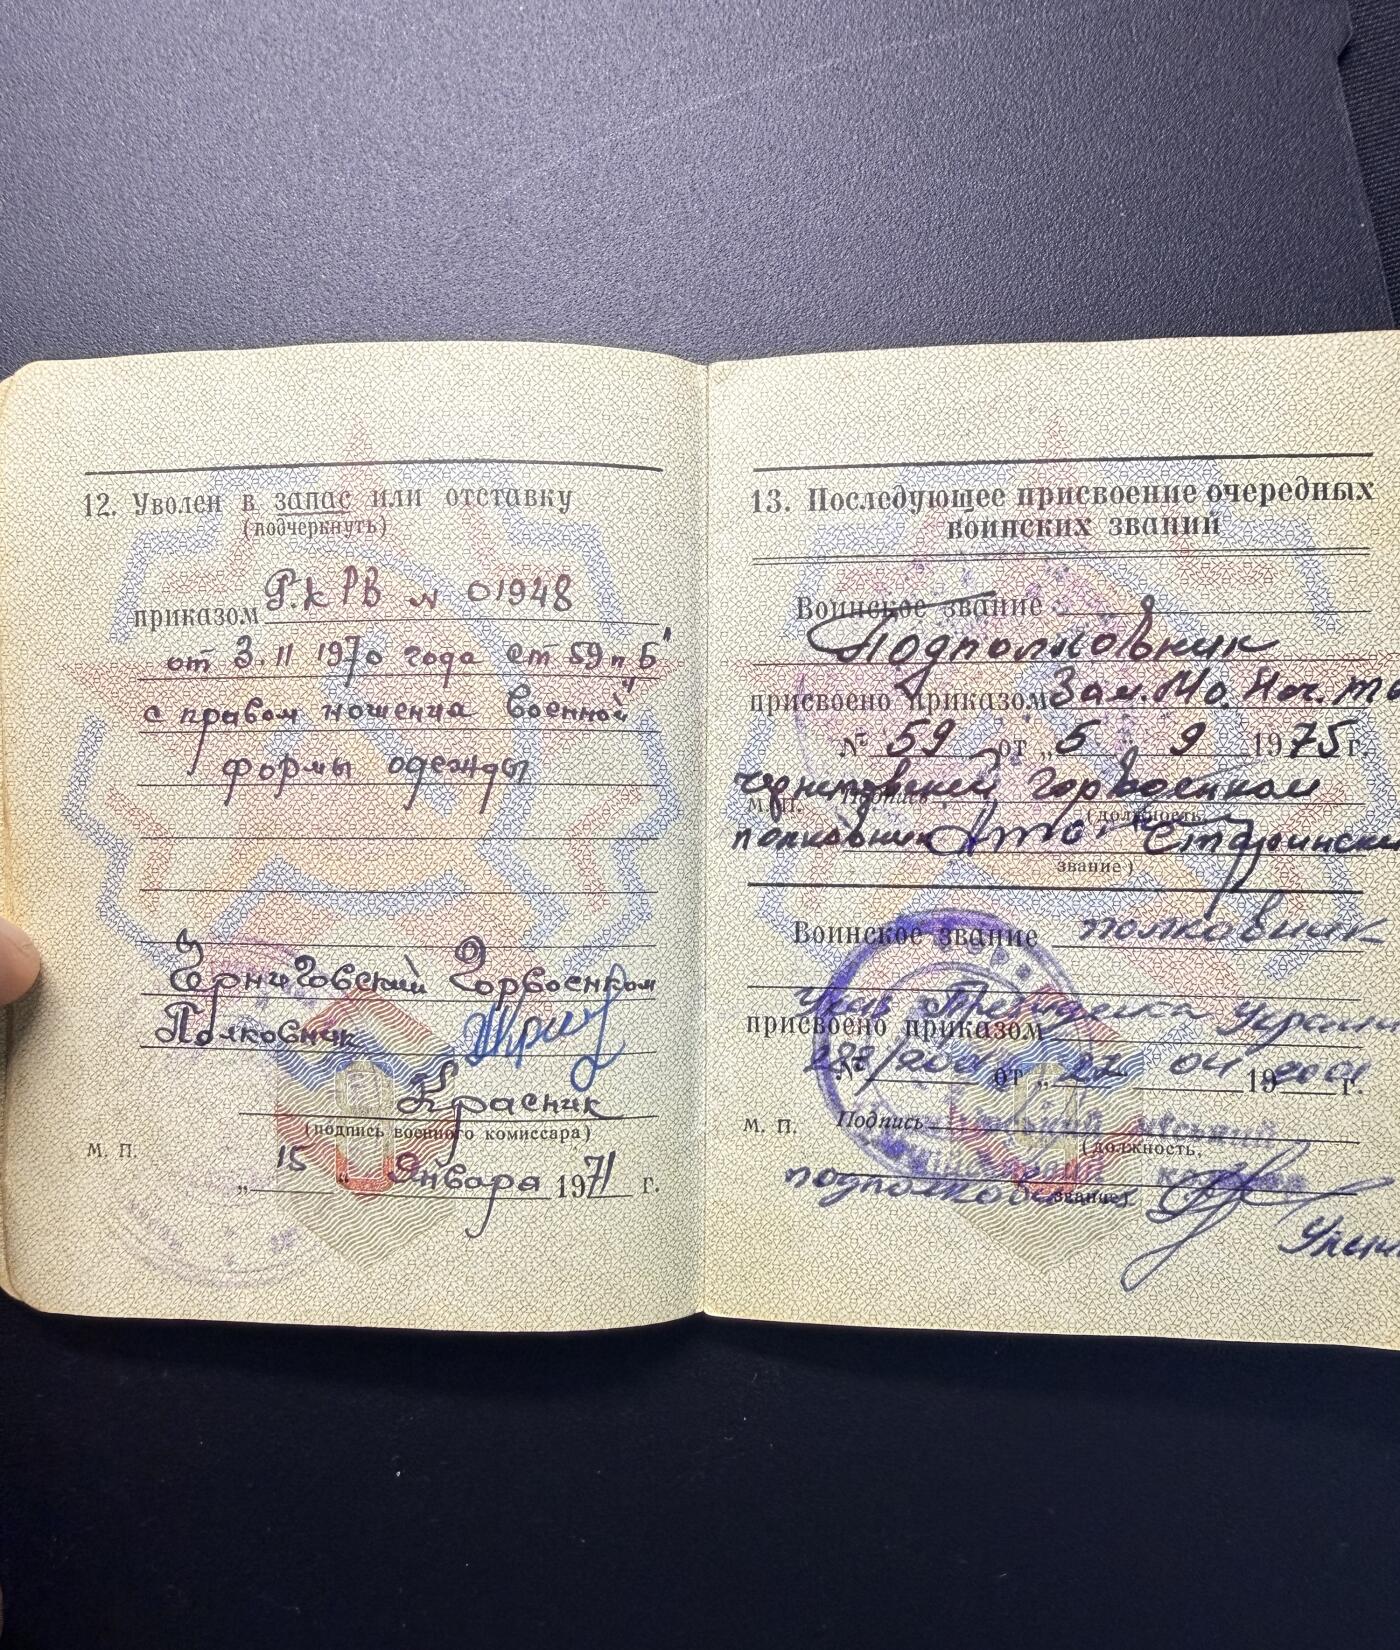 12. Уволен в запас или отставку
(подчеркнуть)
приказом Г.к РВ № 01948
от 3.11 1970 года ст 59 п "Б"
с правом ношения военной
формы одежды
Черниговский Горвоенком
Полковник
Красник
(подпись военного комиссара)
М. П.
„15“ Января 1971 г.
13. Последующее присвоение очередных
воинских званий
Воинское звание
Подполковник
присвоено приказом Зам. Мо.
№ 59 от „5 9 1975 г.
М. П. Подпись горвоенком
(должность,
полковник
звание)
Воинское звание полковник
Указ Президента
присвоено приказом
№ от „27 04 19 2001 г.
М. П. Подпись
(должность,
подполковник
звание)